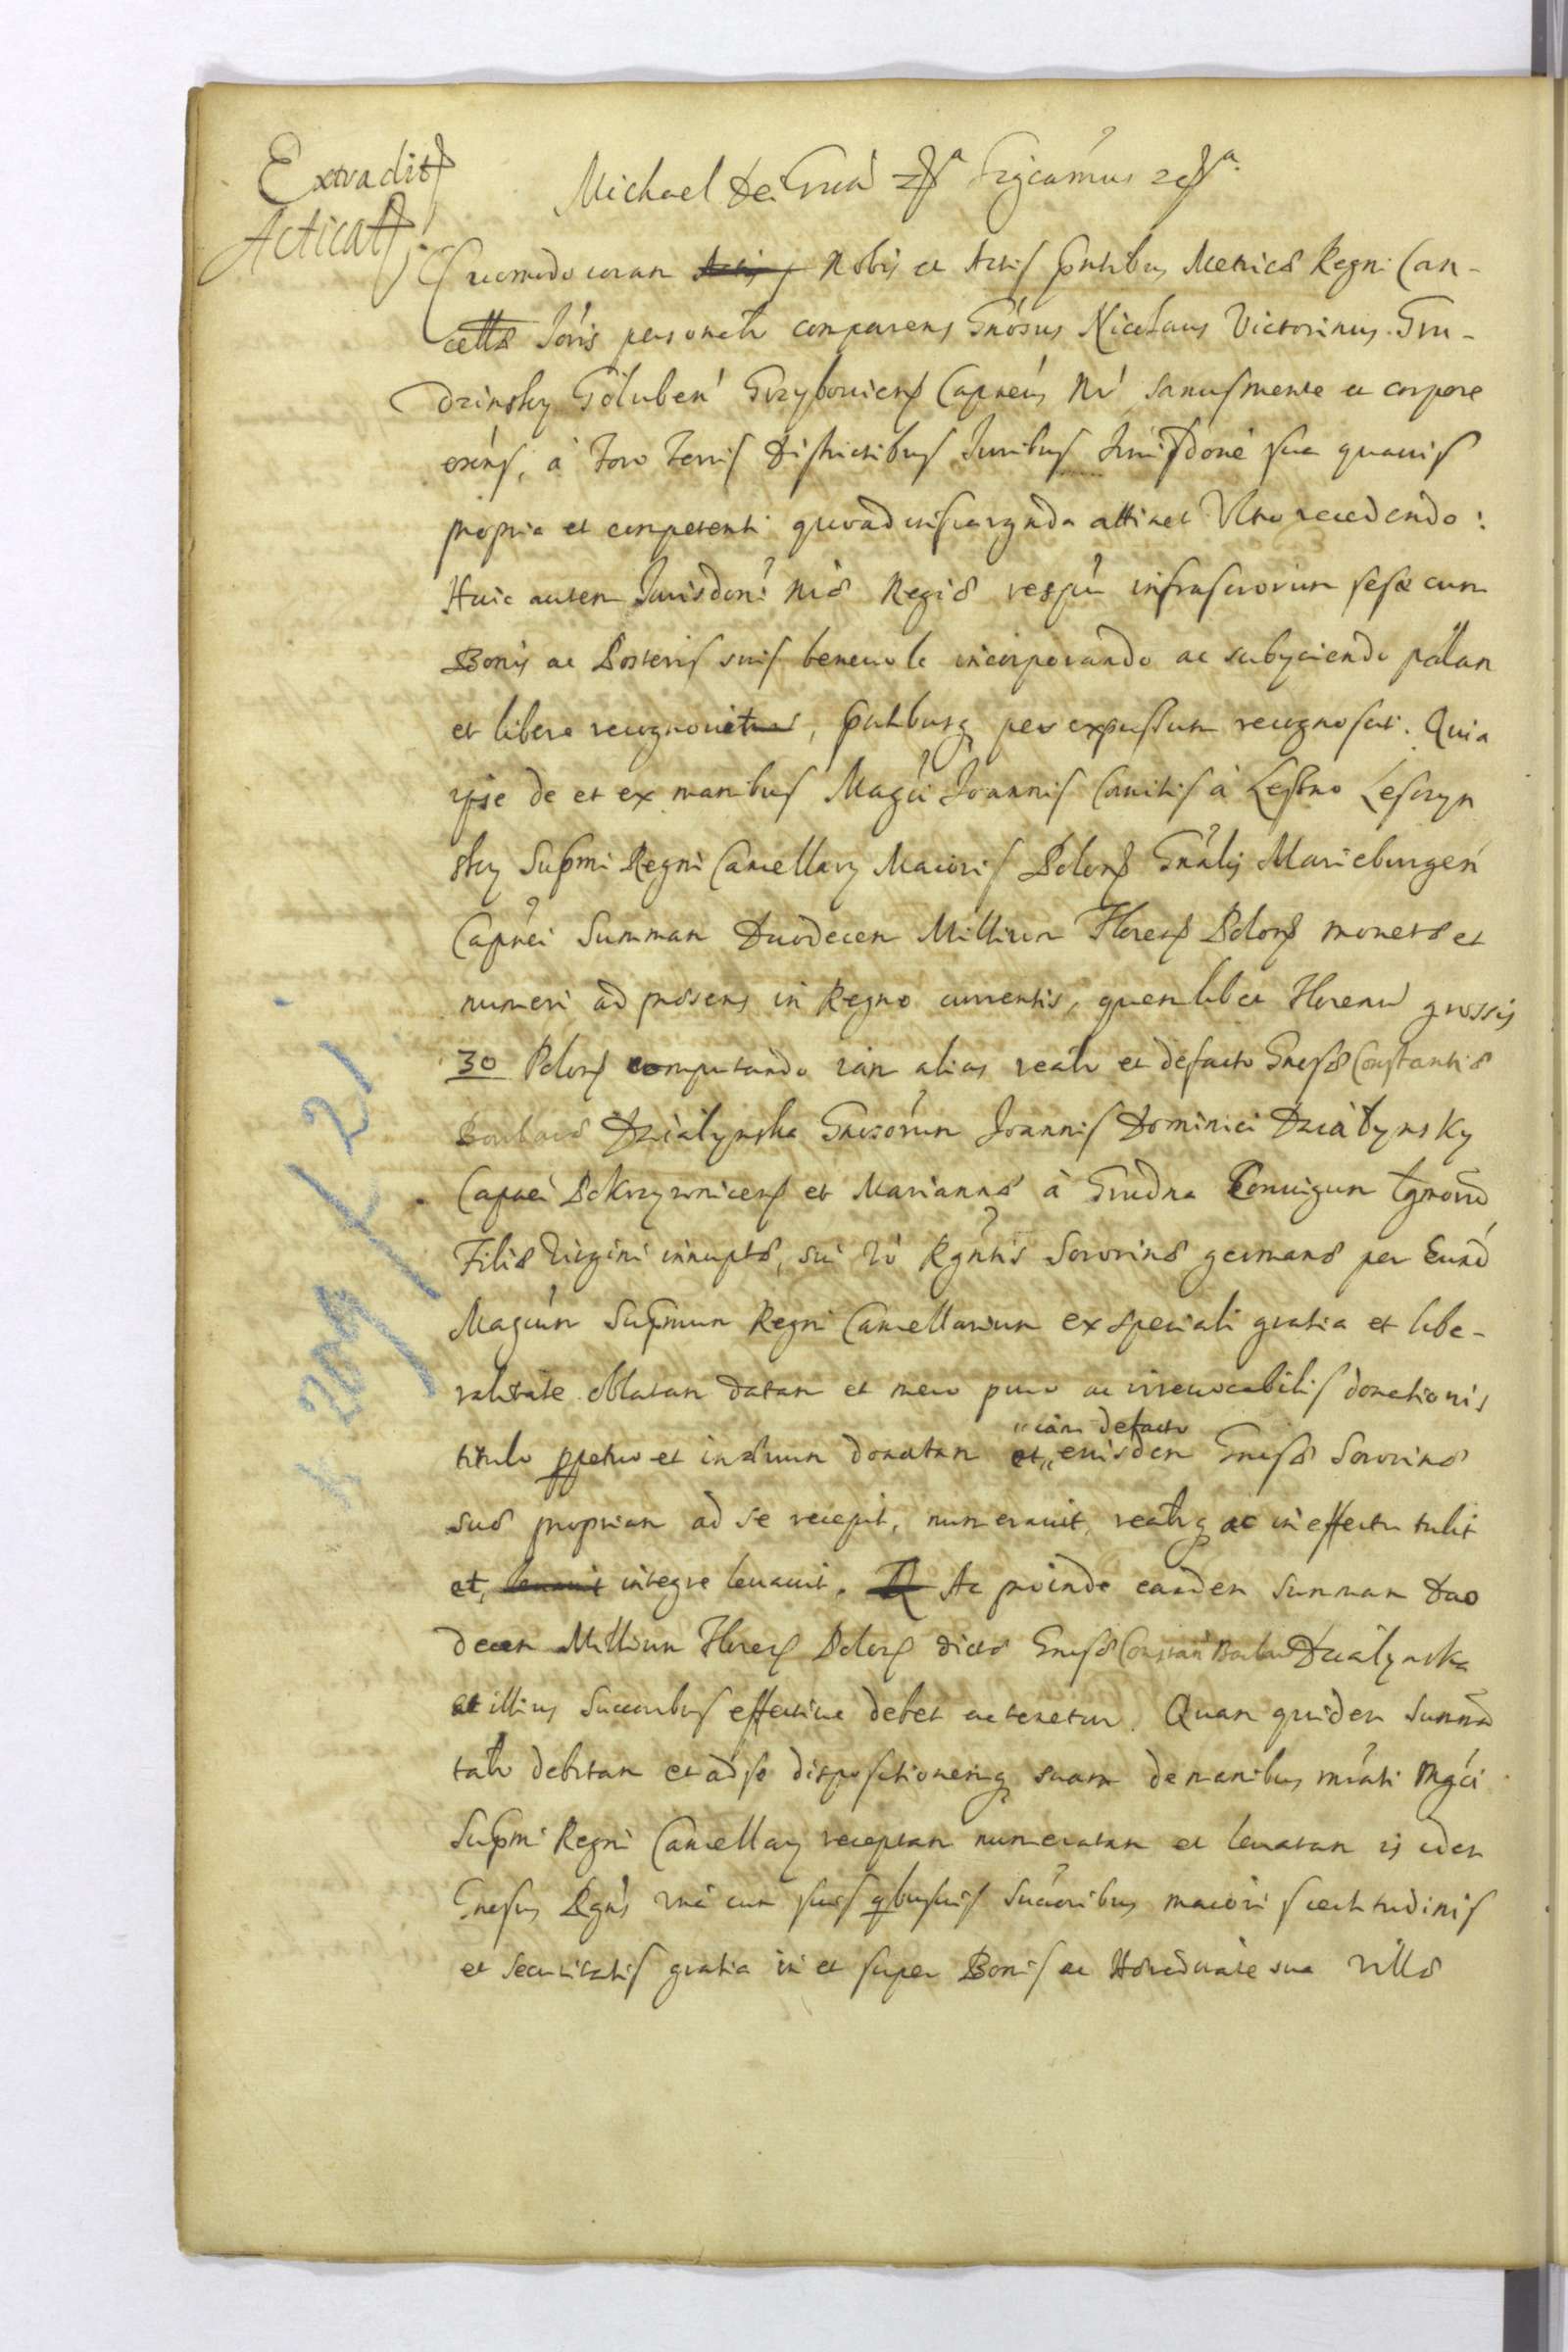 Extradit
Acticat
Michael Dei Gra etca Significamus etca
Quomodo coram Actis Nobis et Actis pntibus Metricæ Regni Can-
cellæ Ioris personalr comparens Gnosus Nicolaus Victorinus Gru-
dzinsky Goluben Grzybouiens Capneus Nr sanus mente et corpore
exens, à foro Terris Districtibus Iuribus Iurisdone sua quauis
propria et competenti quoad infrascrynda attinet Vltro recedendo:
Huic autem Iurisdoni Nræ Regiæ respu infrascrorum sese cum
Bonis ac Posteris suis beneuole incorporando ac subyciendo palam
et libere recognouit, pntbusq per expressum recognoscit. Quia
ipse de et ex manibus Magci Joannis Comitis à Leszno Lesczyn
sky Supmi Regni Cancellary Maioris Polons Gnalis Marieburgen
Capnei Summam Duodecem Millium Florens Polons monetæ et
numeri ad præsens in Regno currentis, quemlibet Florenum grossis
30 Polons computando iam alias realr et defacto Gnesæ Constantiæ
Barbaræ Dzialynska Gnesorum Joannis Dominici Dzialynsky
Capnei Pokrzywnicens et Mariannæ à Grudna Coniugum Lgmorum
Filiæ Virgini innuptæ, sui vo Rgntis Sororinæ germanæ per Eund
Magcum Supmum Regni Cancellarium ex speciali gratia et libe-
ralitate oblatam datam et mero puro ac irreuocabilis donationis
titulo ppetuo et in æuum donatam et, eiusdem Gnesæ Sororinæ
iam defacto
suæ propriam ad se recepit, numerauit, realrq ac in effectu tulit
et, leuauit integre leuauit. Ac proinde eandem Summam Duo
decem Millium Florens Polons dictæ Gnesæ Constan Barbar Dzialynska
et illius Succoribus effectiue debet ac tenetur. Quam quidem Summa
talr debitam et ad se dispositionemq suam de manibus mrati Mgci
Supmi Regni Cancellary receptam numeratam et leuatam is idem
Gnesus Rgns vna cum suis qbusuis Succoribus maioris certitudinis
et securitatis gratia in et super Bonis ac Hæreditate sua Villæ